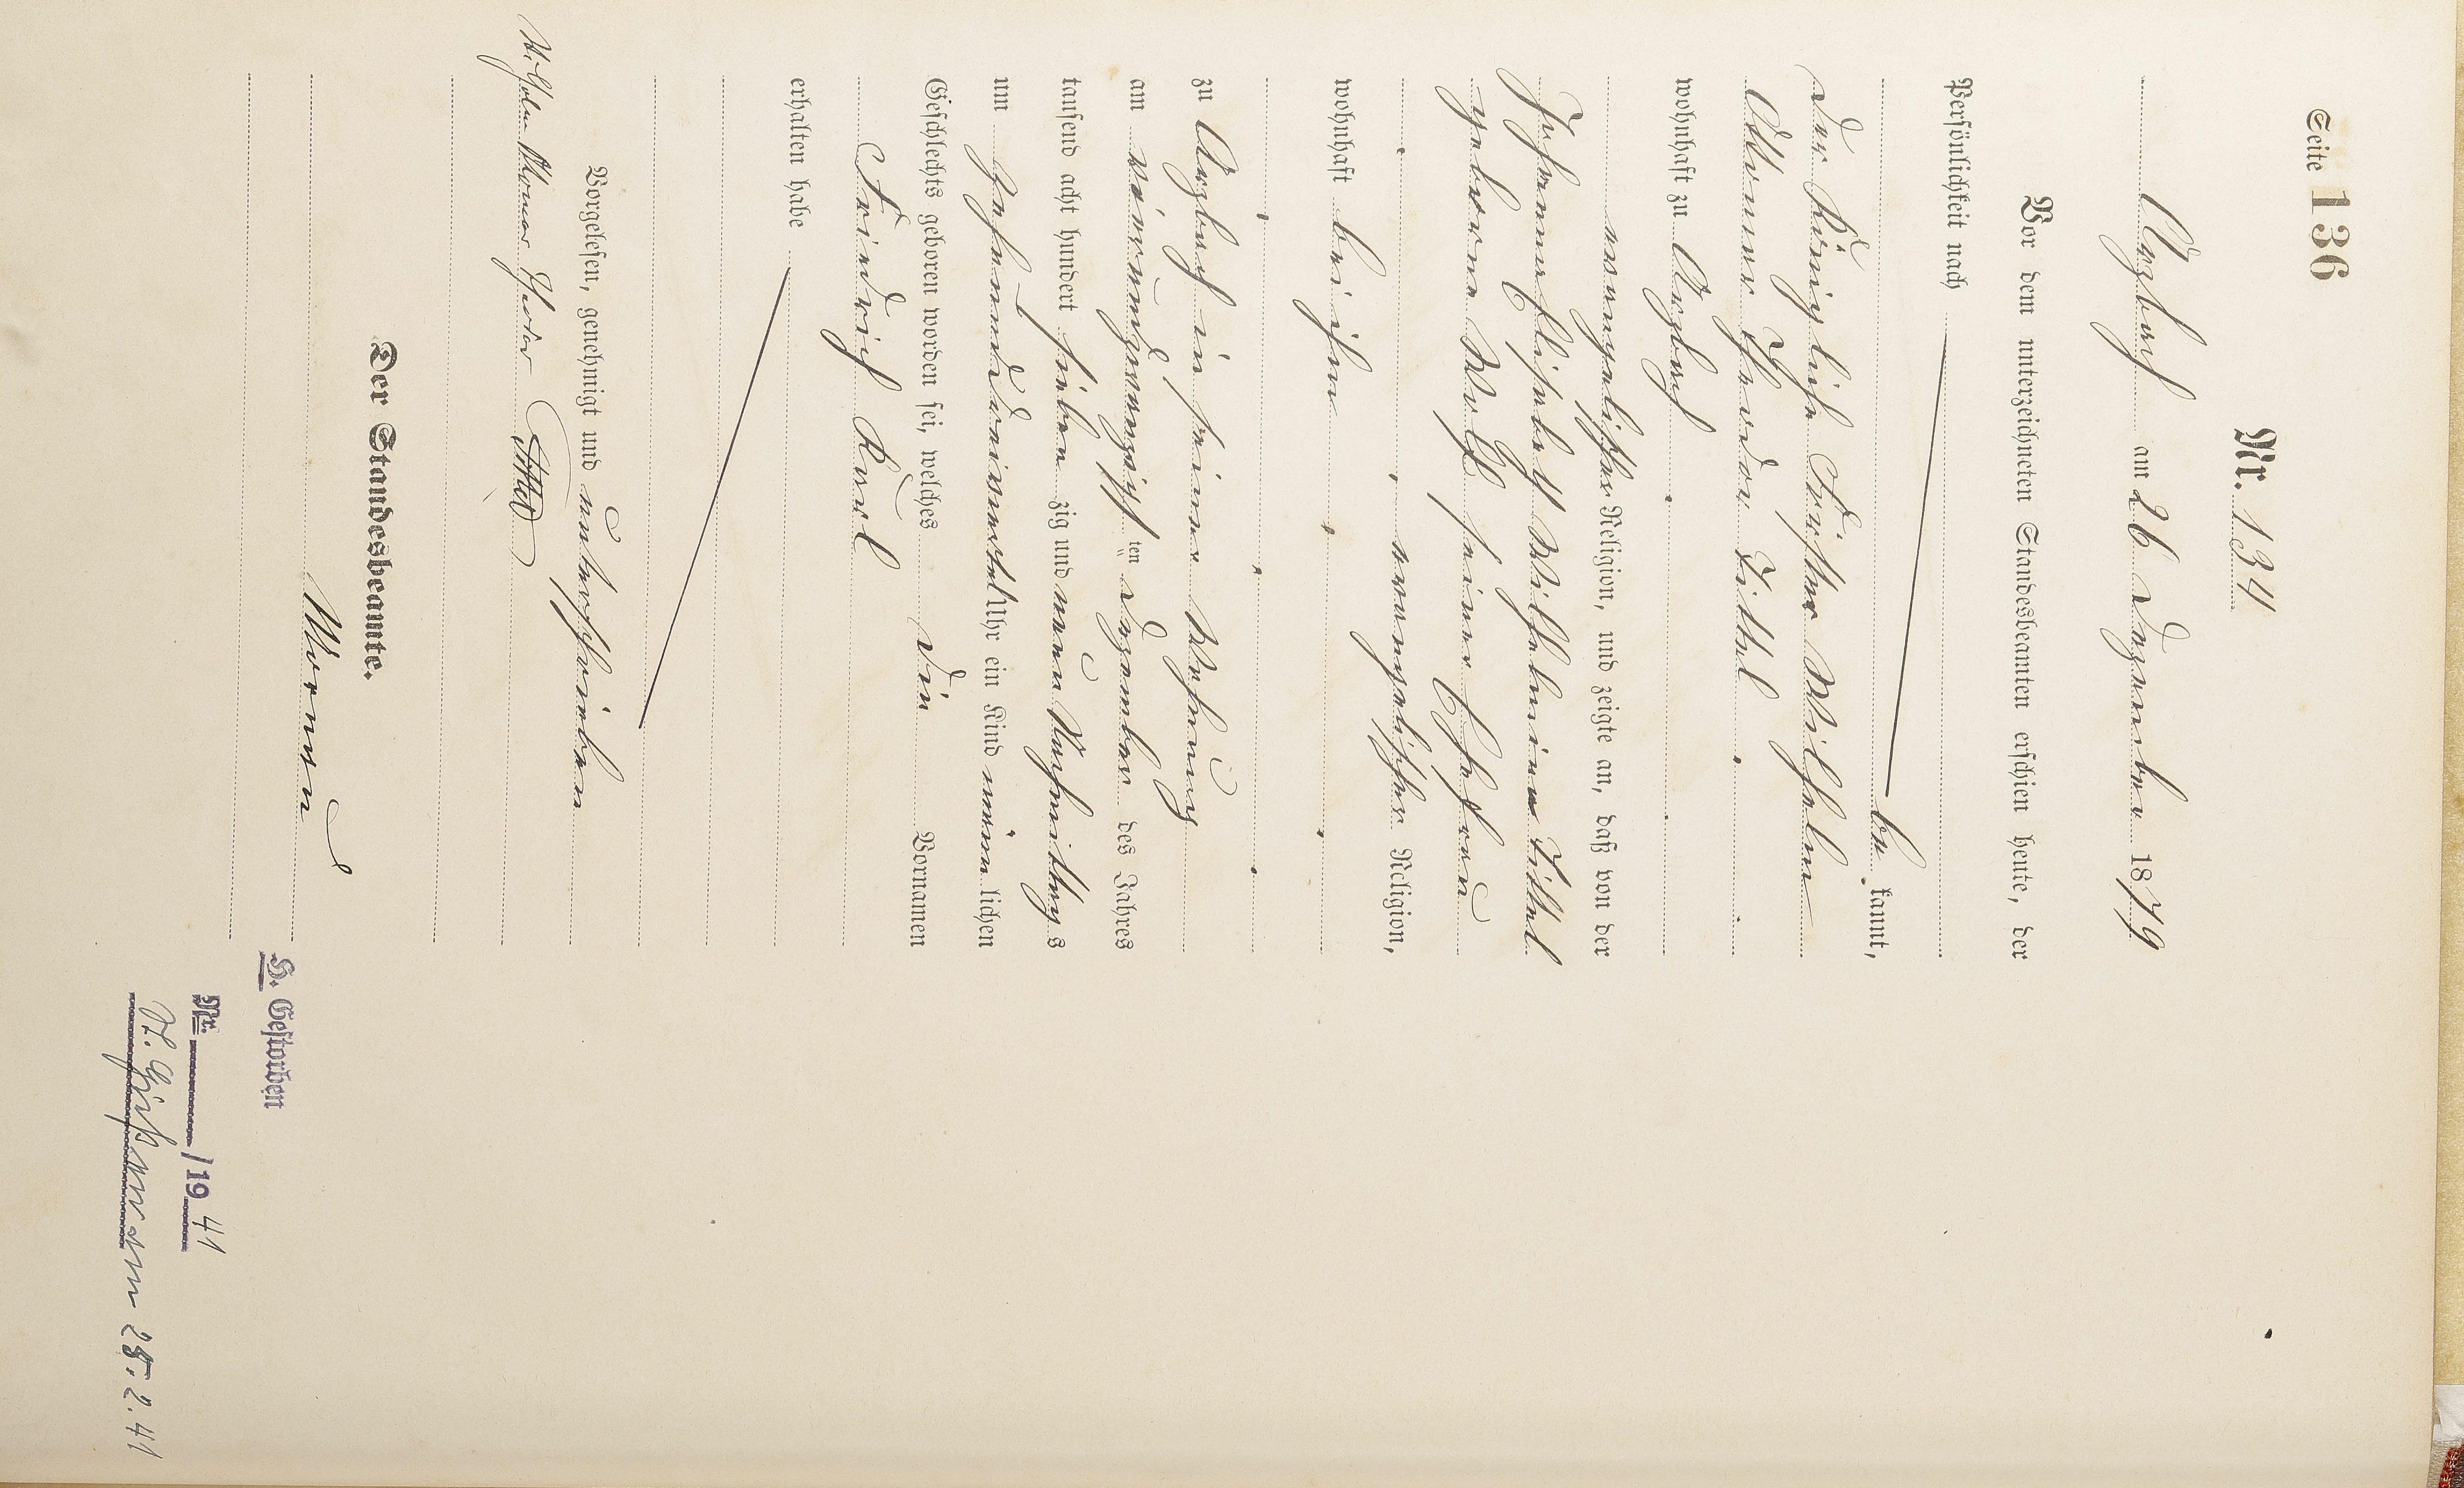 Seite 136
Nr. 134
Arzbach am 26 Dezember 1879
Vor dem unterzeichneten Standesbeamten erschien heute, der
Persönlichkeit nach
be kannt,
der Königliche Förster Wilhelm
Werner Theodor Zittel
wohnhaft zu Arzbach
evangelischer Religion, und zeigte an, daß von der
Johanna Elisabeth Wilhelmine Zittel
geborene Wolf seiner Ehefrau
evangelischer Religion,
wohnhaft bei ihm
zu Arzbach in seiner Wohnung
am vierundzwanzigsten Dezember des Jahres
tausend acht hundert sieben zig und neun Nachmittags
um zehnunddreiviertel Uhr ein Kind männ lichen
Geschlechts geboren worden sei, welches die Vornamen
Friedrich Karl
erhalten habe
Vorgelesen, genehmigt und unterschrieben
Wilhelm Werner Theodor Zittel
Der Standesbeamte.
S. Gestorben
Nr. /19 41
25.2.41